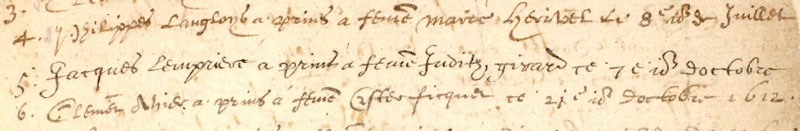 3.
4. Philippes Langloys a prins a femē Marie Herivel le 8e io{r} de Juillet
5. Jacques Lempriere a prins a femē Juditz girard ce 7e io{r} doctobre
6. Clemēt a prins a femē Ester ficquet ce 21e io{r} doctobre 1612.